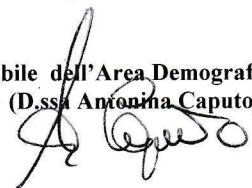 bile dell'Area Demograf
(D.ssa Antonina Caputo
Caputo